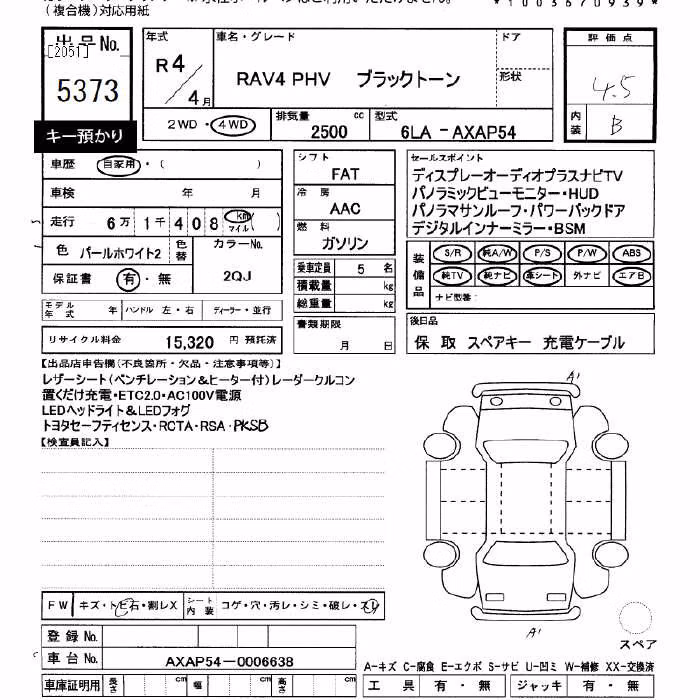 (複合機)対応用紙
*1003670939*
出品No.
[2051]
5373
キー預かり
年式
R4
4月
車名・グレード
RAV4 PHV ブラックトーン
ドア
形状
評価点
4.5
内装
B
2WD・4WD
排気量 cc
2500
型式
6LA-AXAP54
車歴 自家用・( )
車検 年 月
走行 6万1千408 km マイル( )
色 パールホワイト2
色替
カラーNo.
2QJ
保証書 有・無
モデル年式 年
ハンドル 左・右
ディーラー・並行
リサイクル料金 15,320 円 預託済
シフト
FAT
冷房
AAC
燃料
ガソリン
乗車定員 5 名
積載量 kg
総重量 kg
書類期限
月 日
セールスポイント
ディスプレーオーディオプラスナビTV
パノラミックビューモニター・HUD
パノラマサンルーフ・パワーバックドア
デジタルインナーミラー・BSM
装備品
S/R 純A/W P/S P/W ABS
純TV 純ナビ 革シート 外ナビ エアB
ナビ型番:
後日品
保 取 スペアキー 充電ケーブル
【出品店申告欄(不良箇所・欠品・注意事項等)】
レザーシート(ベンチレーション&ヒーター付)レーダークルコン
置くだけ充電・ETC2.0・AC100V電源
LEDヘッドライト&LEDフォグ
トヨタセーフティセンス・RCTA・RSA・PKSB
【検査員記入】
A1
A1
スペア
FW キズ・トビ石・割レX
シート内装 コゲ・穴・汚レ・シミ・破レ・スレ
登録No.
車台No. AXAP54-0006638
車庫証明用 長さ cm 幅 cm 高さ cm
A-キズ C-腐食 E-エクボ S-サビ U-凹ミ W-補修 XX-交換済
工具 有・無 ジャッキ 有・無